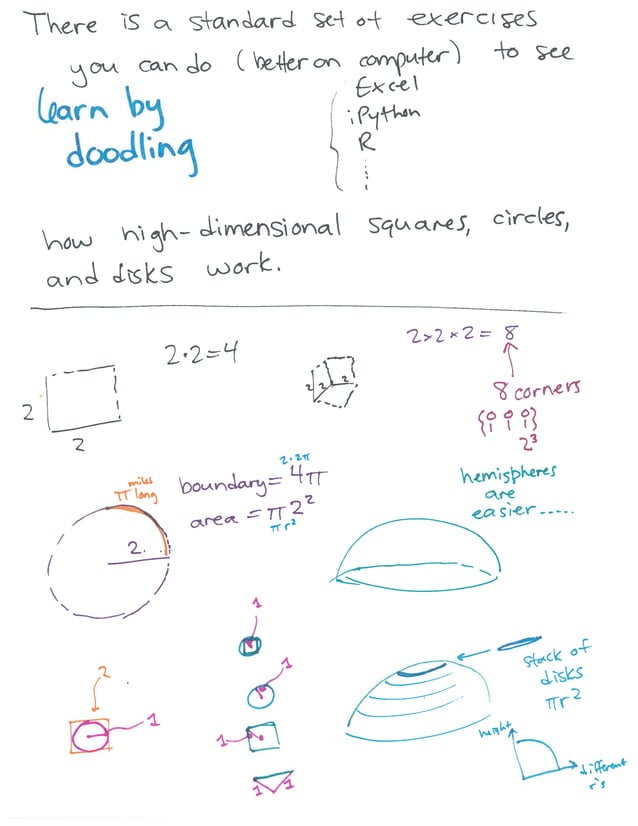 There is a standard set of exercises
you can do (better on computer) to see
learn by
doodling
Excel
iPython
R
how high-dimensional squares, circles,
and disks work.
2·2=4
2
2
2×2×2= 8
2 2 2
8 corners
{0/1 0/1 0/1}
2³
miles
π long
2.
2·2π
boundary= 4π
area = π2²
πr²
hemispheres
are
easier.....
2
1
1
1
1
1 1
stack of
disks
πr²
height
different
r's